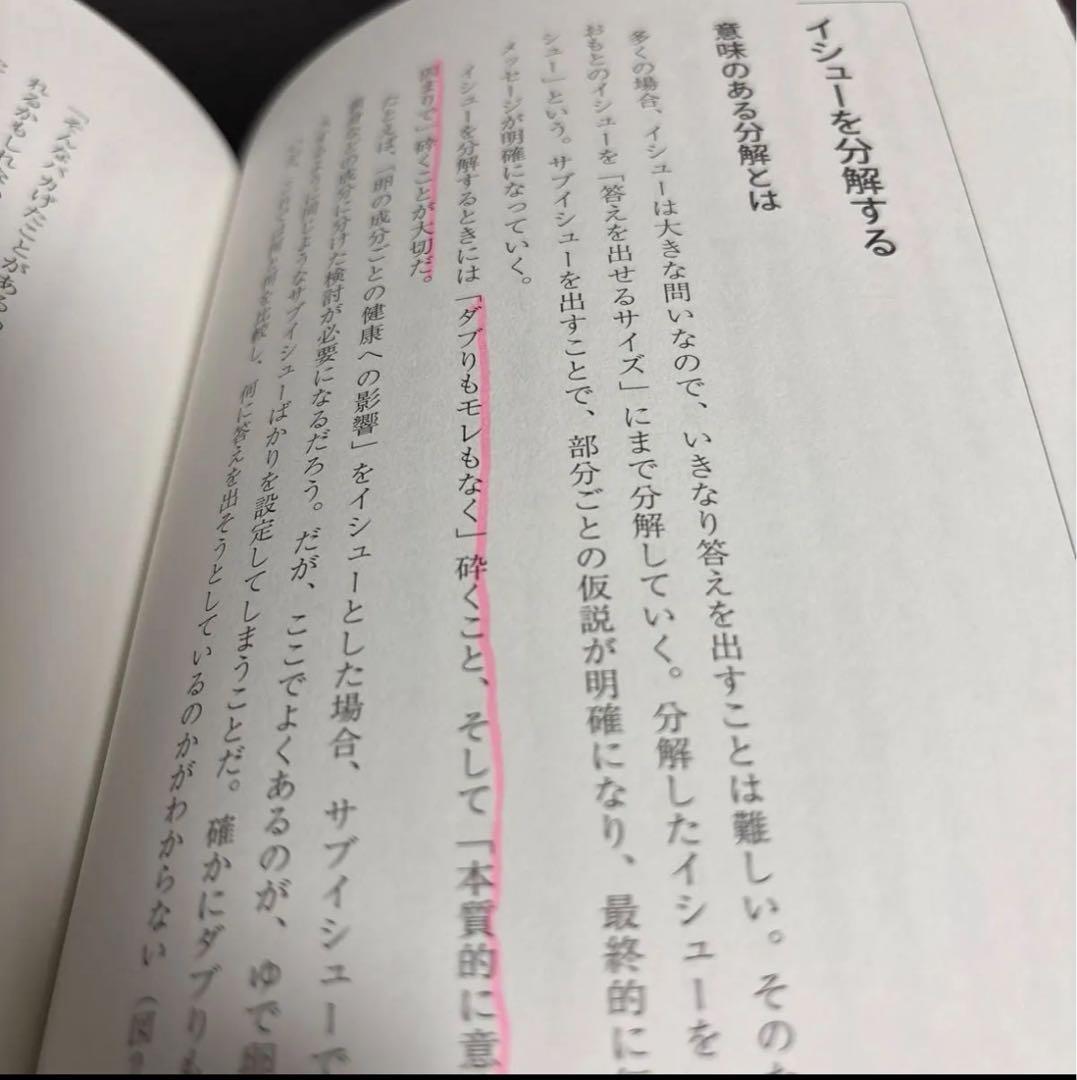 イシューを分解する
意味のある分解とは
多くの場合、イシューは大きな問いなので、いきなり答えを出すことは難しい。そのた
おもとのイシューを「答えを出せるサイズ」にまで分解していく。分解したイシューを
シュー」という。サブイシューを出すことで、部分ごとの仮説が明確になり、最終的に
メッセージが明確になっていく。
イシューを分解するときには「ダブりもモレもなく」砕くこと、そして「本質的に意
固まりで」砕くことが大切だ。
たとえば、「卵の成分ごとの健康への影響」をイシューとした場合、サブイシューで
などの成分に分けた検討が必要になるだろう。だが、ここでよくあるのが、ゆで卵
同じようなサブイシューばかりを設定してしまうことだ。確かにダブりも
何と何を比較し、何に答えを出そうとしているのかがわからない（図
「そんなバカげたことがある
れるかもしれない